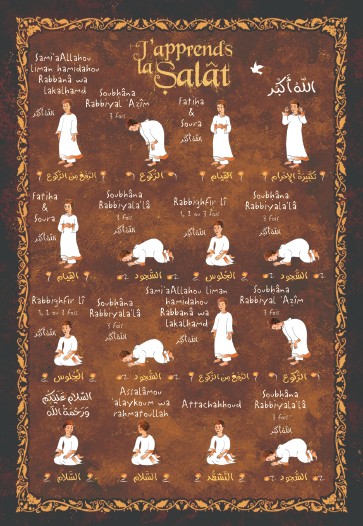 J'apprends
la Ṣalât
الله أكبر
تكبيرة الإحرام
Fatiha
&
Soura
الله أكبر
القيام
Soubhâna
Rabbiyal 'Azîm
3 fois
الله أكبر
الركوع
Sami'aAllahou
liman hamidahou
Rabbanâ wa
lakalhamd
الله أكبر
الرفع من الركوع
Soubhâna
Rabbiyala'lâ
3 fois
الله أكبر
السجود
Rabbighfir lî
1, 2 or 3 fois
الله أكبر
الجلوس
Soubhâna
Rabbiyala'lâ
3 fois
الله أكبر
السجود
Fatiha
&
Soura
الله أكبر
القيام
Soubhâna
Rabbiyal 'Azîm
3 fois
الله أكبر
الركوع
Sami'aAllahou liman
hamidahou
Rabbanâ wa
lakalhamd
الله أكبر
الرفع من الركوع
Soubhâna
Rabbiyala'lâ
3 fois
الله أكبر
السجود
Rabbighfir lî
1, 2 or 3 fois
الله أكبر
الجلوس
Soubhâna
Rabbiyala'lâ
3 fois
الله أكبر
السجود
Attachahhoud
التشهد
Assalâmou
alaykoum wa
rahmatoullah
السلام
السلام عليكم
ورحمة الله
السلام